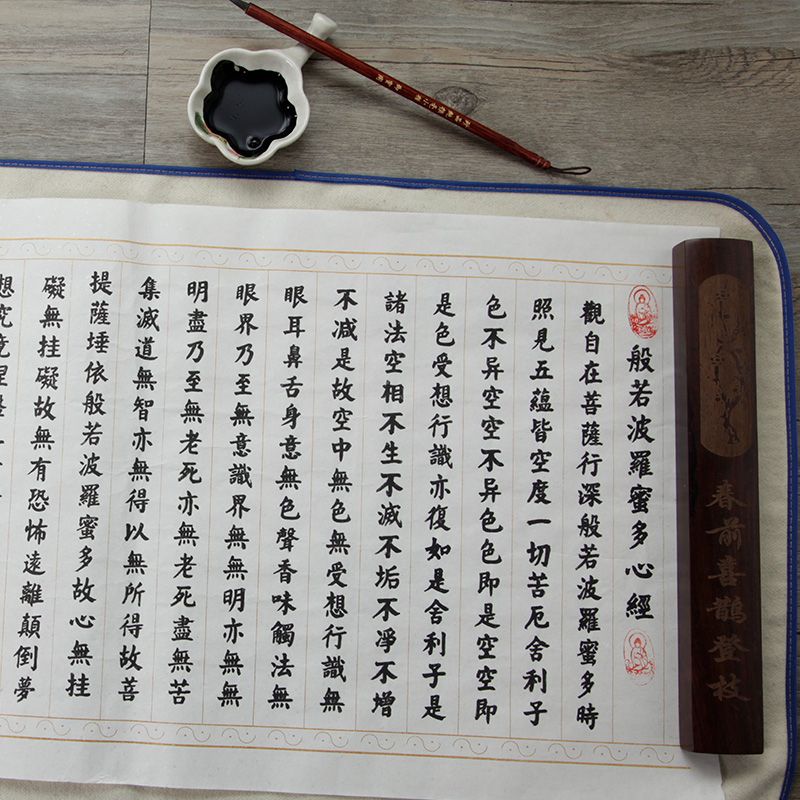 春前喜鵲登枝
般若波羅蜜多心經
觀自在菩薩行深般若波羅蜜多時
照見五蘊皆空度一切苦厄舍利子
色不异空空不异色色即是空空即
是色受想行識亦復如是舍利子是
諸法空相不生不滅不垢不凈不增
不减是故空中無色無受想行識無
眼耳鼻舌身意無色聲香味觸法無
眼界乃至無意識界無無明亦無無
明盡乃至無老死亦無老死盡無苦
集滅道無智亦無得以無所得故菩
提薩埵依般若波羅蜜多故心無挂
礙無挂礙故無有恐怖遠離顛倒夢
想究竟涅